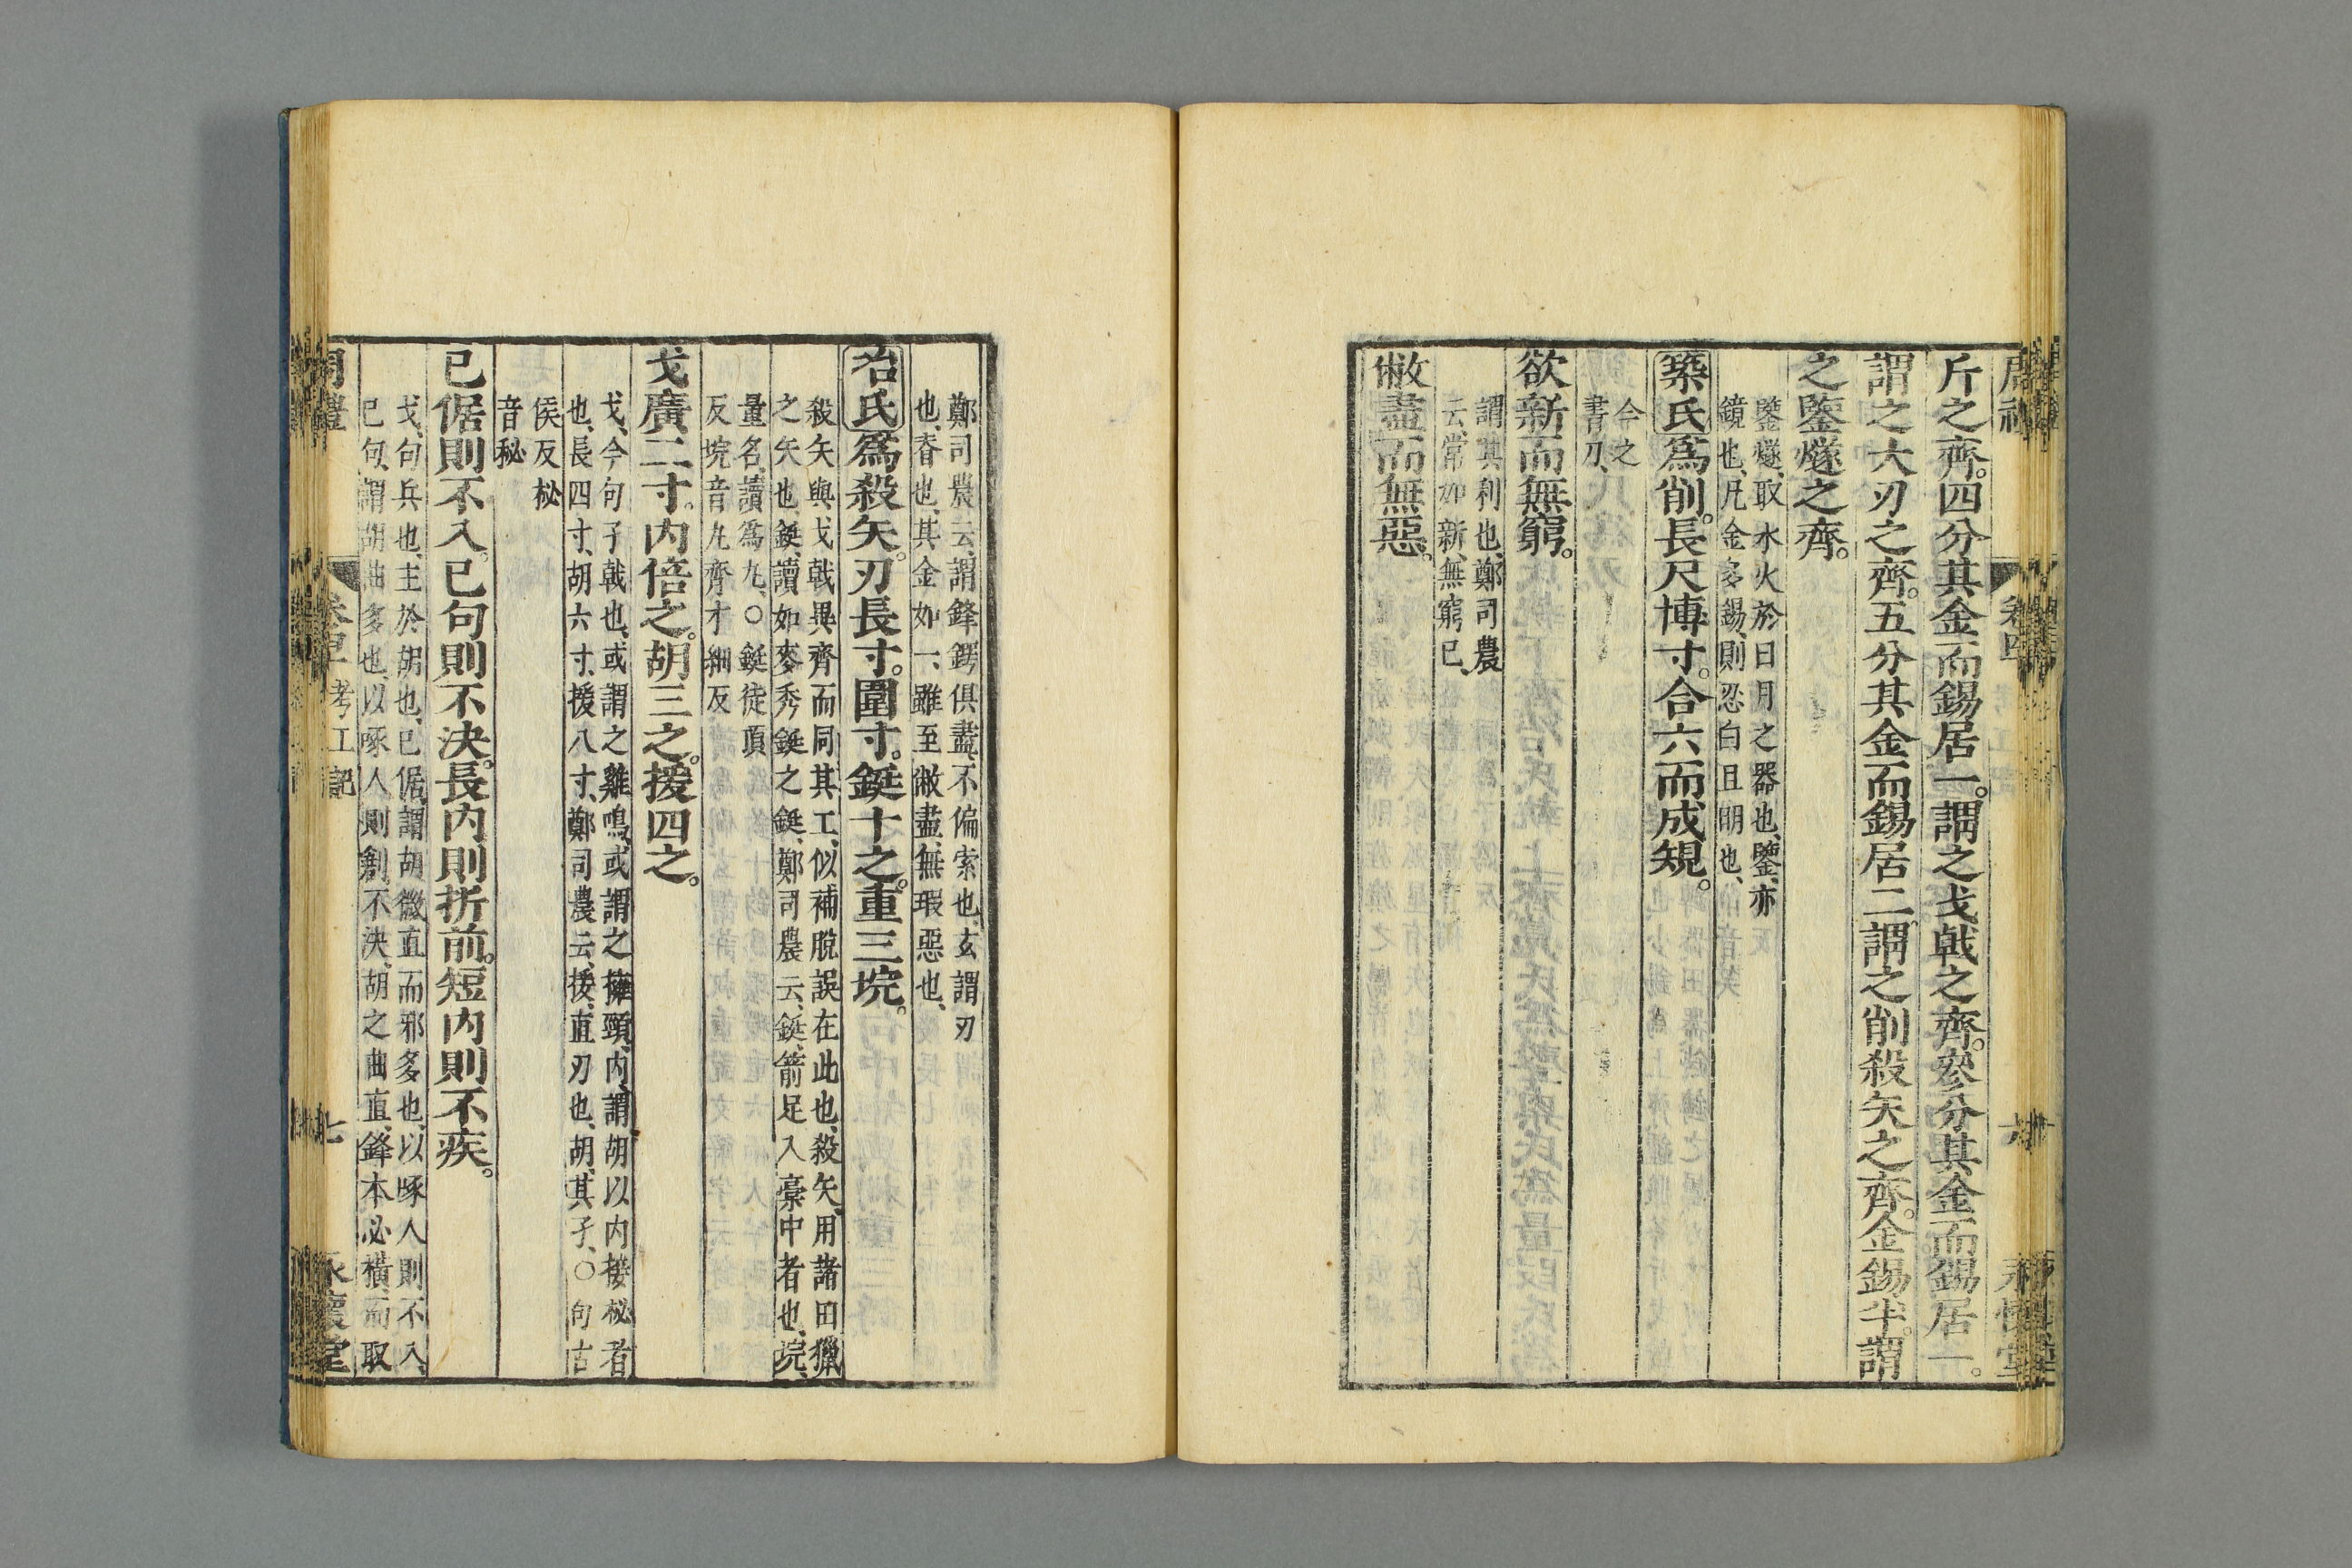 斤之齊。四分其金而錫居一。謂之戈戟之齊。參分其金而錫居一。
謂之大刃之齊。五分其金而錫居二。謂之削殺矢之齊。金錫半。謂
之鑒燧之齊。
鑒燧、取水火於日月之器也、鑒、亦
鏡也、凡金多錫、則忍白且明也、
築氏爲削。長尺博寸。合六而成䂓。
今之
書刀、
欲新而無窮。
謂其利也、鄭司農
云、常如新、無窮已、
敝盡而無惡。
鄭司農云、謂鋒鍔俱盡、不偏索也、玄謂刃
也、脊也、其金如一、雖至敝盡、無瑕惡也、
冶氏爲殺矢。刃長寸。圍寸。鋌十之。重三垸。
殺矢與、戈戟異齊、而同其工、似補脫誤在此也、殺矢、用諸田獵
之矢也、鋌、讀如麥秀鋌之鋌、鄭司農云、鋌、箭足入槀中者也、垸、
量名、讀爲丸、○鋌徒頂
反垸音丸齊才細反
戈廣二寸。内倍之。胡三之。援四之。
戈、今句孑戟也、或謂之雞鳴、或謂之擁頸、内、謂胡以内接柲者
也、長四寸、胡六寸、援八寸、鄭司農云、援、直刃也、胡、其孑、○句古
侯反柲
音秘
已倨則不入。已句則不決。長内則折前。短内則不疾。
戈、句兵也、主於胡也、已倨、謂胡微直而邪多也、以啄人則不入、
已句、謂胡曲多也、以啄人則創不決、胡之曲直、鋒本必横、而取
卷 考工記
七